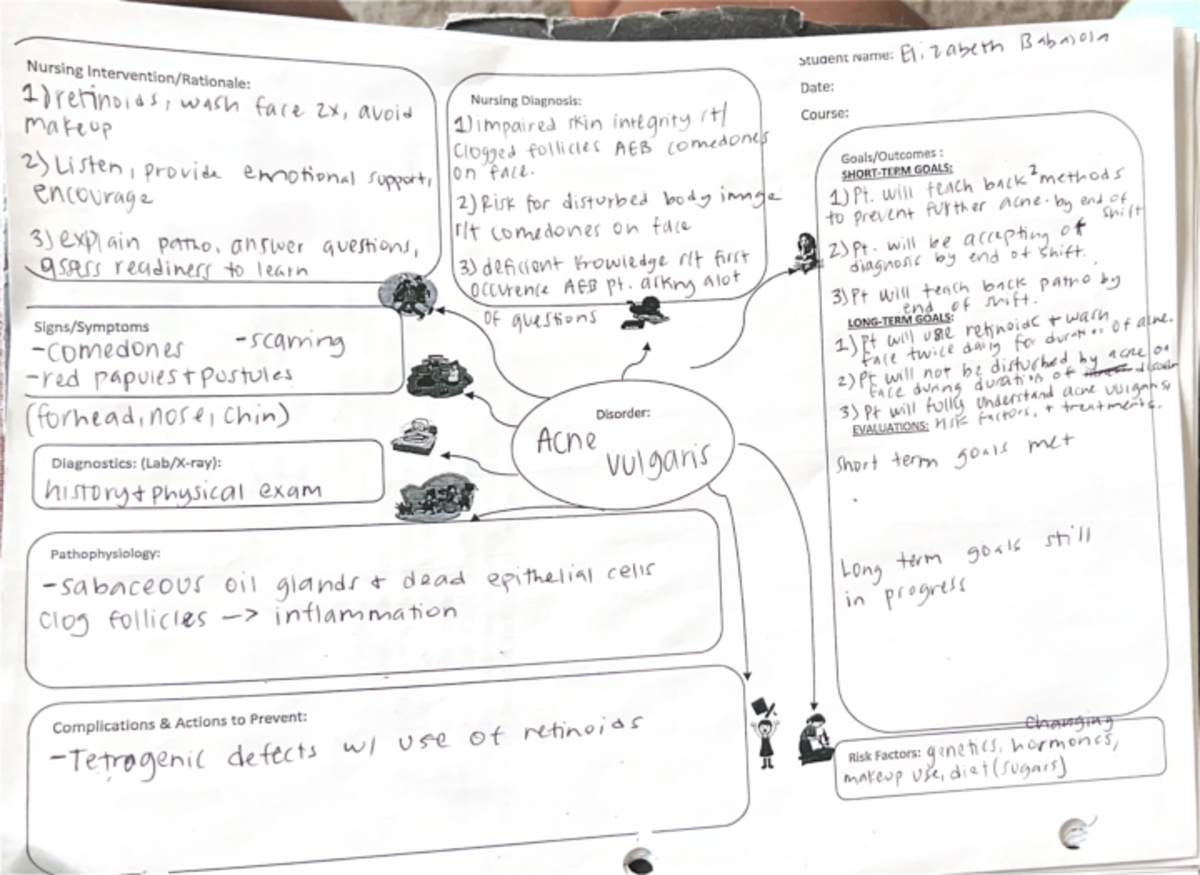 Nursing Intervention/Rationale:
1) retinoids, wash face 2x, avoid
makeup
2) Listen, provide emotional support,
encourage
3) explain patho, answer questions,
assess readiness to learn
Nursing Diagnosis:
1) impaired skin integrity r/t
clogged follicles AEB comedones
on face.
2) Risk for disturbed body image
r/t comedones on face
3) deficient knowledge r/t first
occurence AEB pt. asking alot
of questions
Student Name: Elizabeth Babajola
Date:
Course:
Goals/Outcomes :
SHORT-TERM GOALS:
1) Pt. will teach back 2 methods
to prevent further acne by end of
shift
2) Pt. will be accepting of
diagnosis by end of shift.
3) Pt will teach back patho by
end of shift.
LONG-TERM GOALS:
1) Pt will use retinoids + wash
face twice daily for duration of acne.
2) Pt will not be disturbed by acne on
face during duration of
3) Pt will fully understand acne vulgaris,
EVALUATIONS: risk factors, + treatments.
short term goals met
Long term goals still
in progress
Signs/Symptoms
-comedones -scarring
-red papules + pustules
(forhead, nose, chin)
Disorder:
Acne
vulgaris
Diagnostics: (Lab/X-ray):
history + physical exam
Pathophysiology:
-sabaceous oil glands + dead epithelial cells
clog follicles -> inflammation
Complications & Actions to Prevent:
-Tetrogenic defects w/ use of retinoids
changing
Risk Factors: genetics, hormones,
makeup use, diet (sugars)